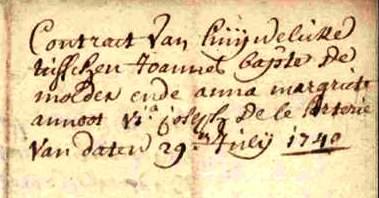 Contract van huijwelicke
tusschen Joannes bapte de
molder ende anna margriete
annoot v.a joseph de le
van daten 29.n July 1740